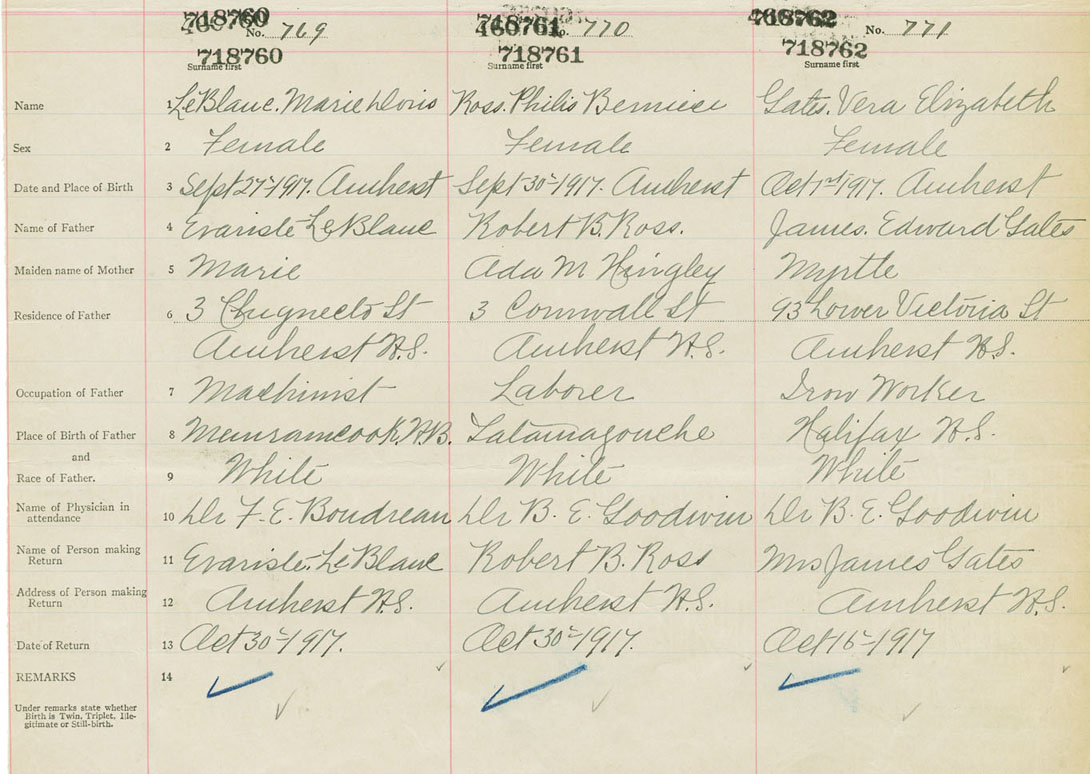 718760 718761 468762
No. 769 770 No. 771
718760 718761 718762
Surname first Surname first Surname first
Name 1 LeBlanc. Marie Doris Ross. Philis Berniece Gates. Vera Elizabeth
Sex 2 Female Female Female
Date and Place of Birth 3 Sept 27-1917. Amherst Sept 30-1917. Amherst Oct 1st 1917. Amherst
Name of Father 4 Evariste LeBlanc Robert B. Ross. James. Edward Gates
Maiden name of Mother 5 Marie Ada M Hingley Myrtle
Residence of Father 6 3 Chignecto St 3 Cornwall St 93 Lower Victoria St
Amherst N.S. Amherst N.S. Amherst N.S.
Occupation of Father 7 Machinist Laborer Iron Worker
Place of Birth of Father 8 Memramcook, N.B. Tatamagouche Halifax N.S.
and
Race of Father. 9 White White White
Name of Physician in
attendance 10 Dr F. E. Boudreau Dr B. E. Goodwin Dr B. E. Goodwin
Name of Person making
Return 11 Evariste. LeBlanc Robert B. Ross Mrs James Gates
Address of Person making
Return 12 Amherst N.S. Amherst N.S. Amherst N.S.
Date of Return 13 Oct 30-1917. Oct 30-1917. Oct 16-1917
REMARKS 14
Under remarks state whether
Birth is Twin, Triplet, Ille-
gitimate or Still-birth.